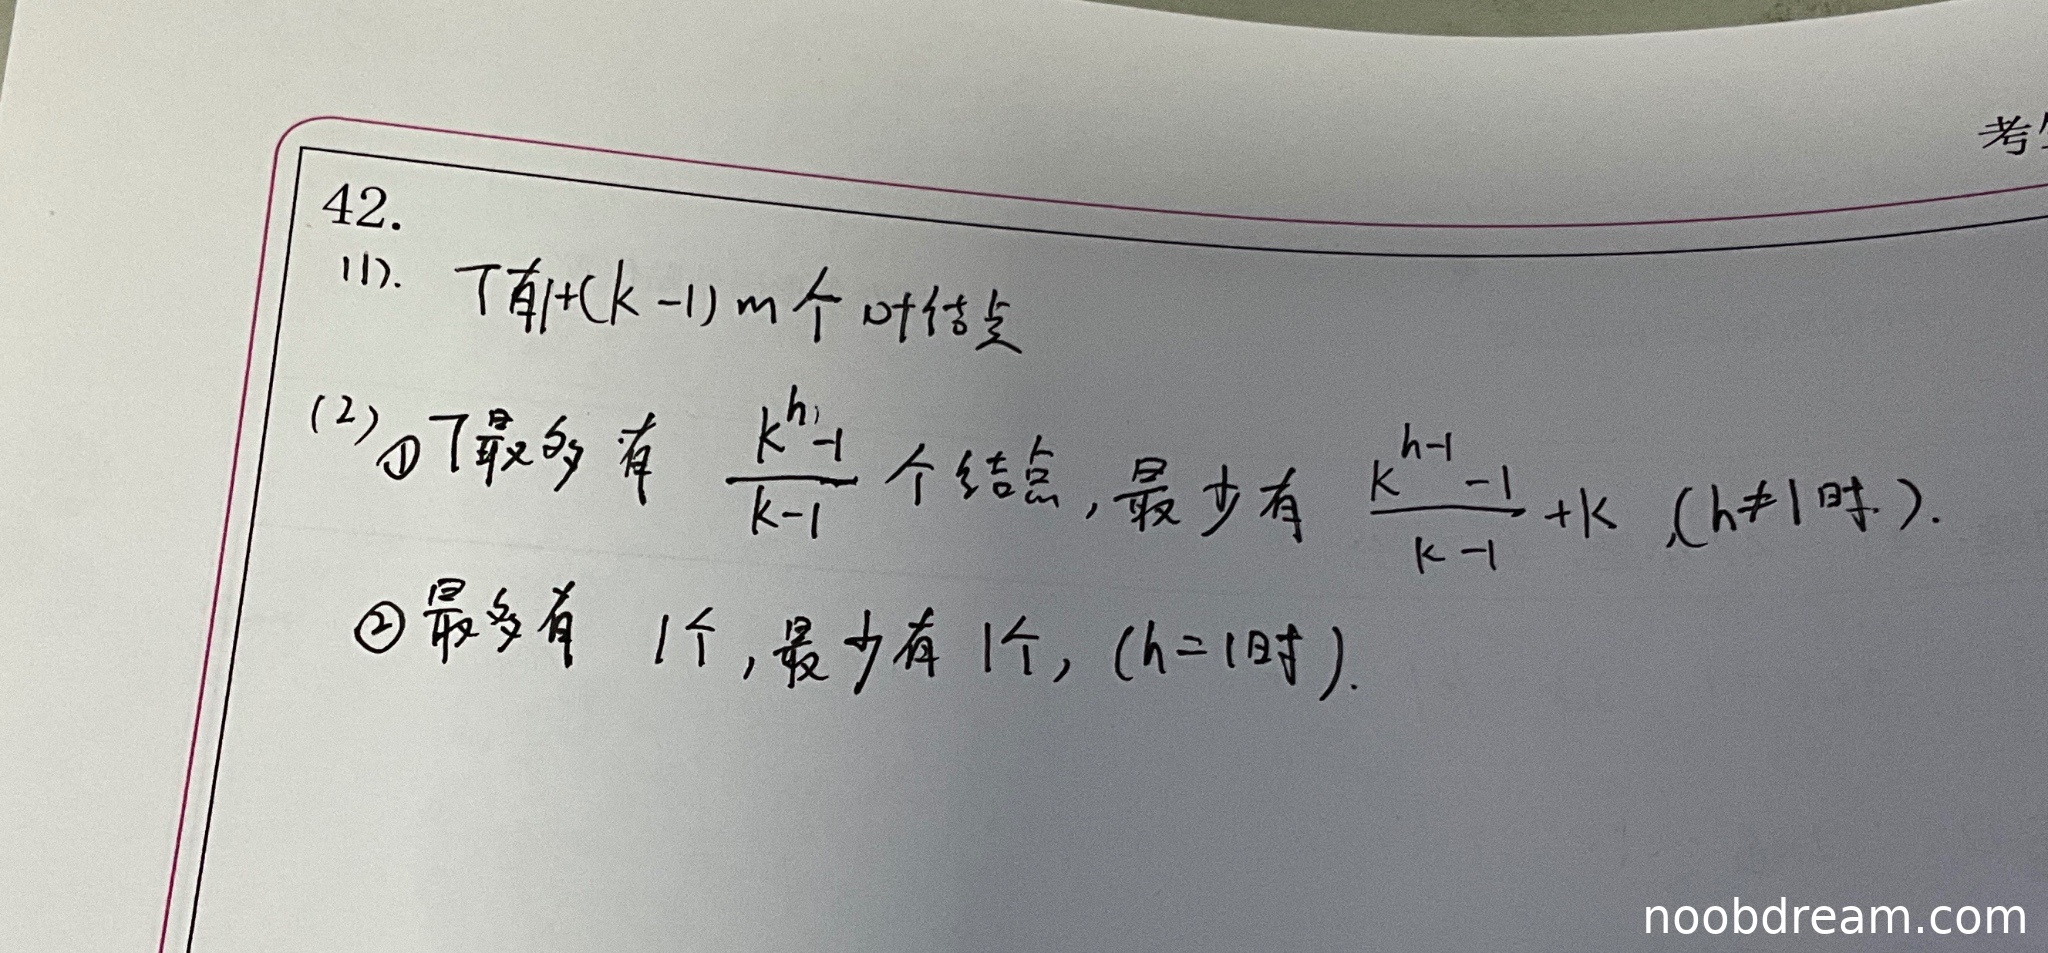 考
42.
(1). T有1+(k-1)m个叶结点
(2) ① T最多有 (k^h-1)/(k-1) 个结点,最少有 (k^(h-1)-1)/(k-1) +k ,(h≠1时).
② 最多有 1个,最少有 1个,(h=1时).
noobdream.com